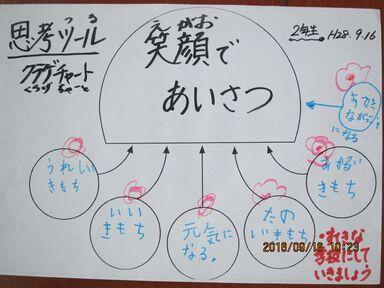 つ る
思考ツール
クラゲチャート
くらげ ちゃーと
え がお
笑顔で
あいさつ
2年生 H28.9.16
すてき
になる
うれしい
きもち
いい
きもち
元気に
なる。
たの
しいきもち
あかるい
きもち
学校にして
いきましょう
2016/09/16 10:23